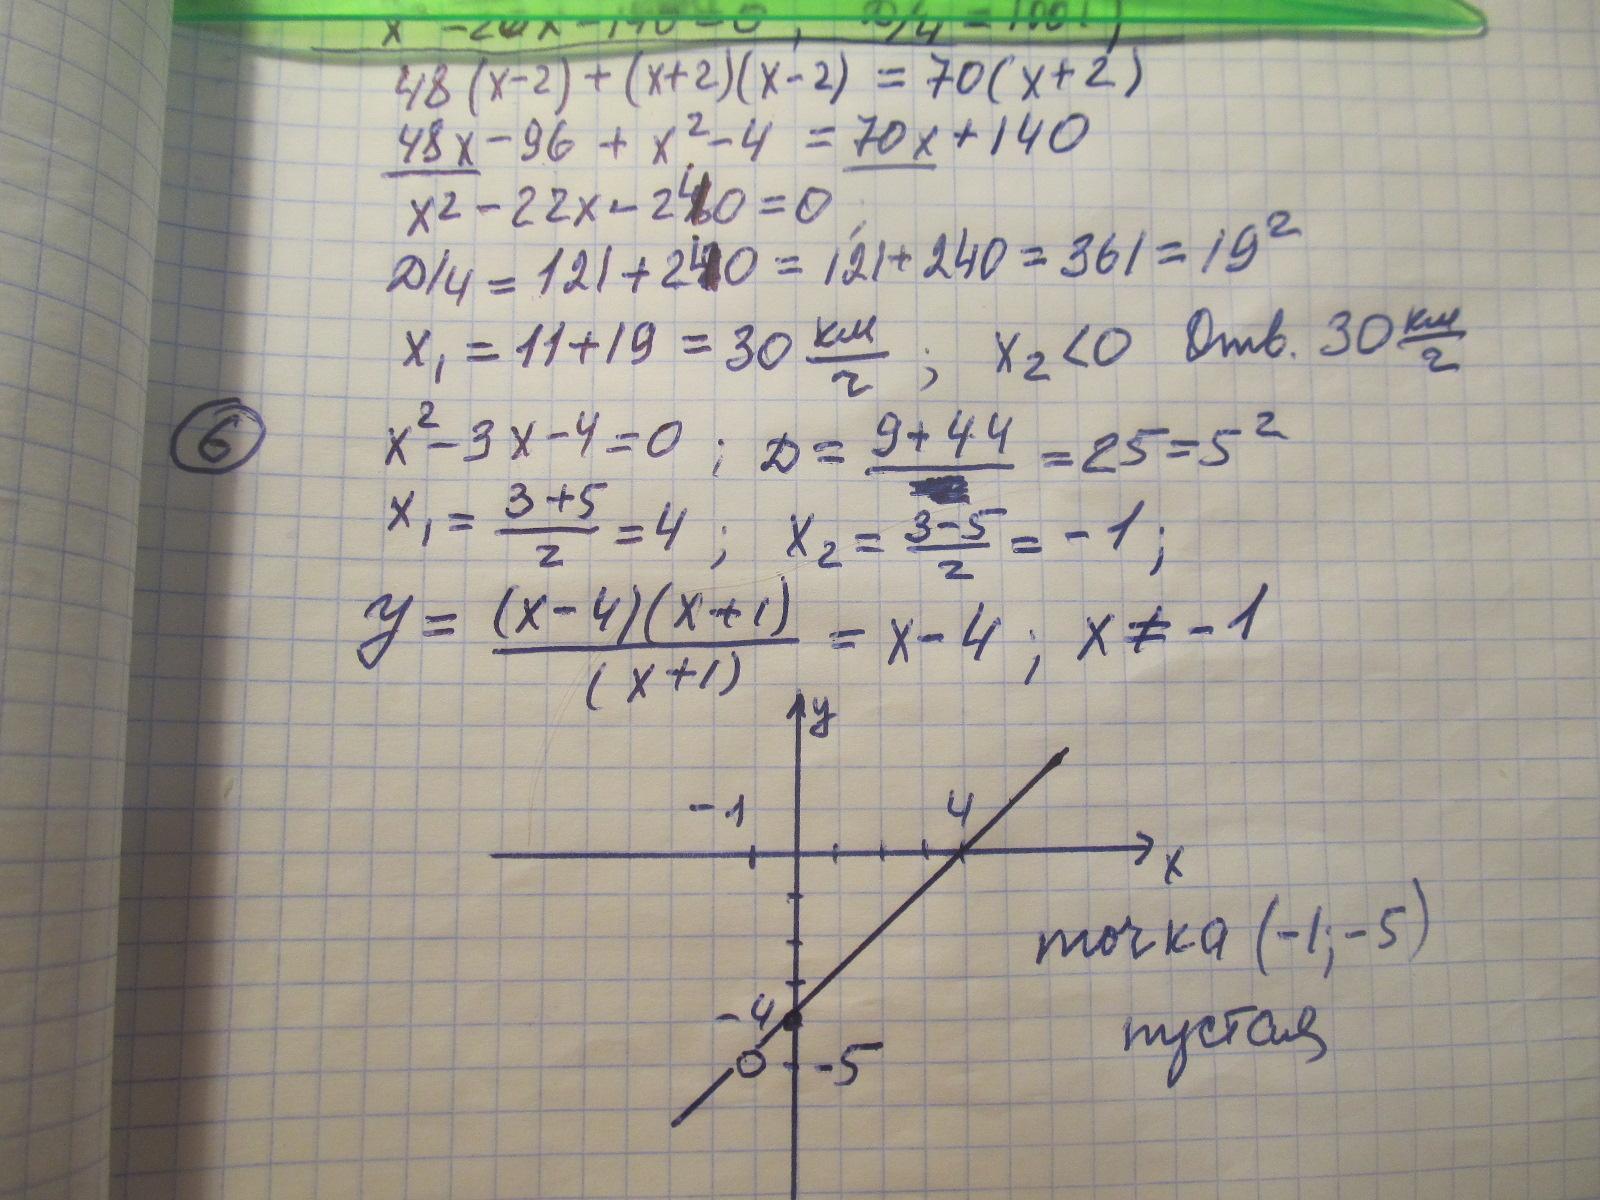 48(x-2)+(x+2)(x-2) = 70(x+2)
48x-96+x²-4 = 70x+140
x²-22x-240=0
D/4 = 121+240 = 121+240 = 361 = 19²
x₁ = 11+19 = 30 км/г ; x₂<0 Отв. 30 км/г
6 x²-3x-4=0 ; D = 9+4·4 = 25 = 5²
x₁ = (3+5)/2 = 4 ; x₂ = (3-5)/2 = -1 ;
y = (x-4)(x+1)/(x+1) = x-4 ; x ≠ -1
y
-1 4
x
точка (-1;-5)
пустая
-4
-5